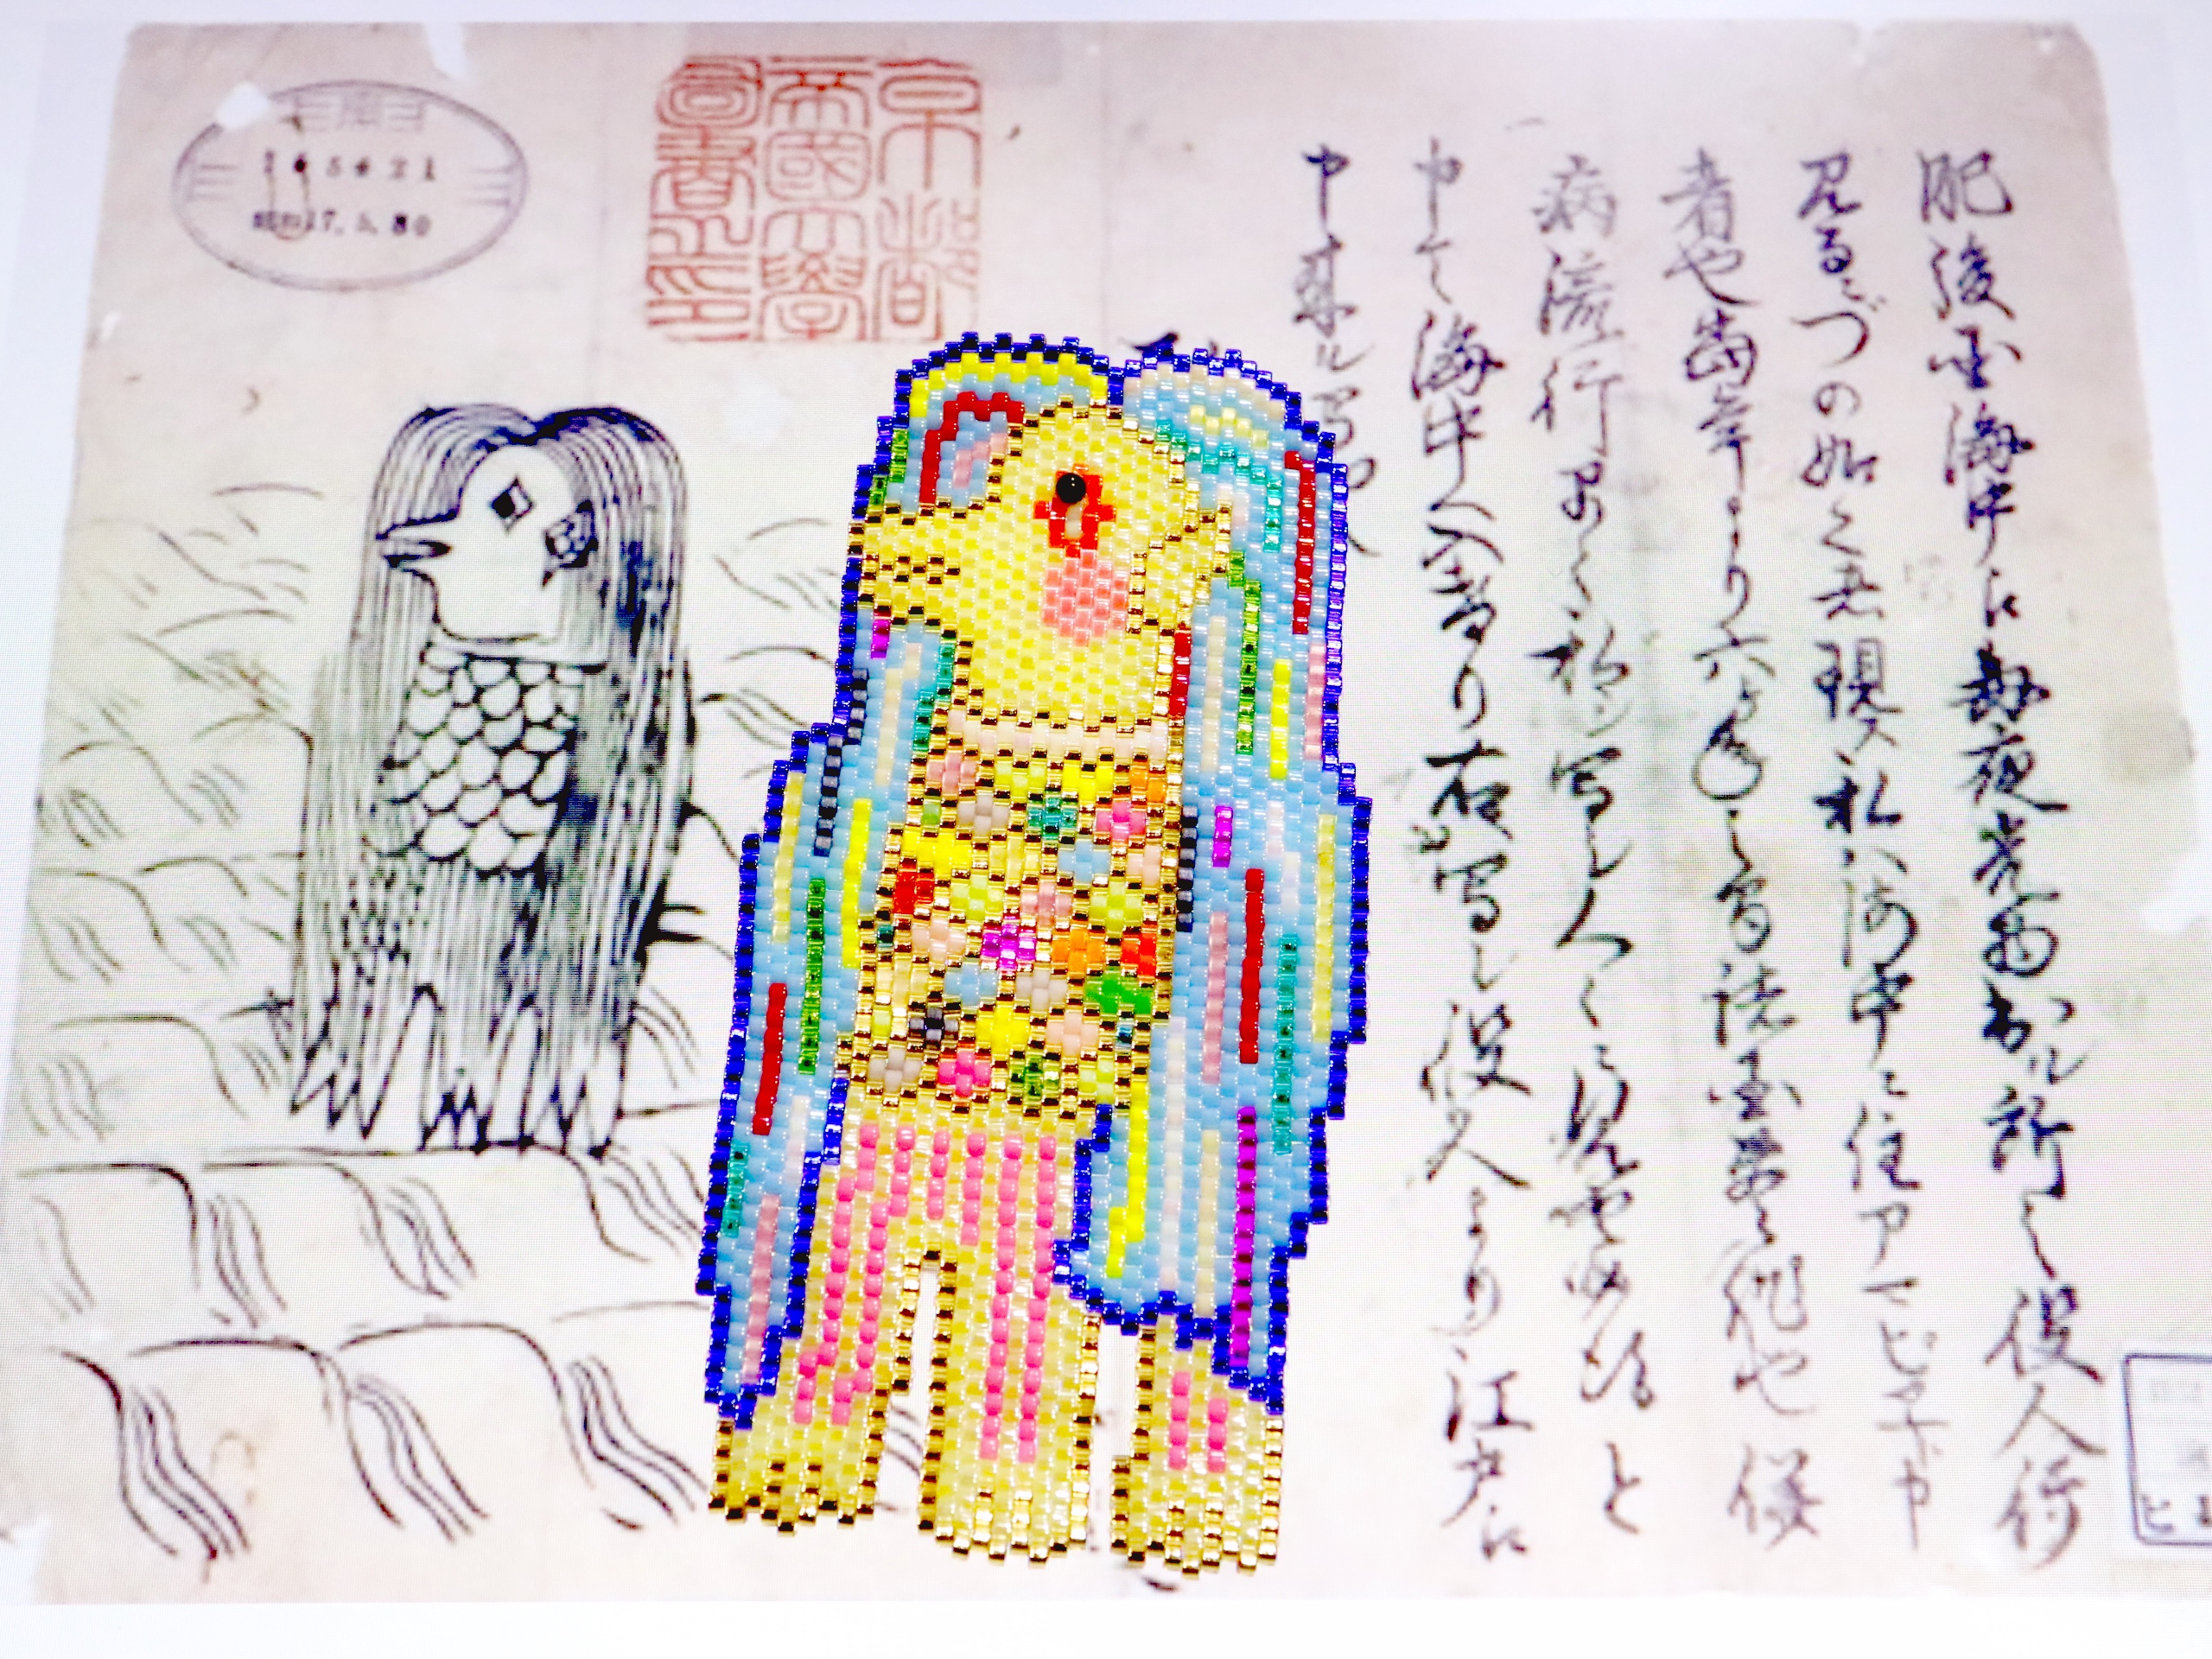 肥後国海中江毎夜光物出ル所之役人行
見るニづの如く者現ス私ハ海中ニ住アマビヱト申
者也當年より六ヶ年之間諸国豊作也併
病流行早々私ヲ写シ人々ニ見セ候得と
申て海中へ入けり右写シ役人より江戸江
申来ル写也
京都
帝國大學
圖書之印